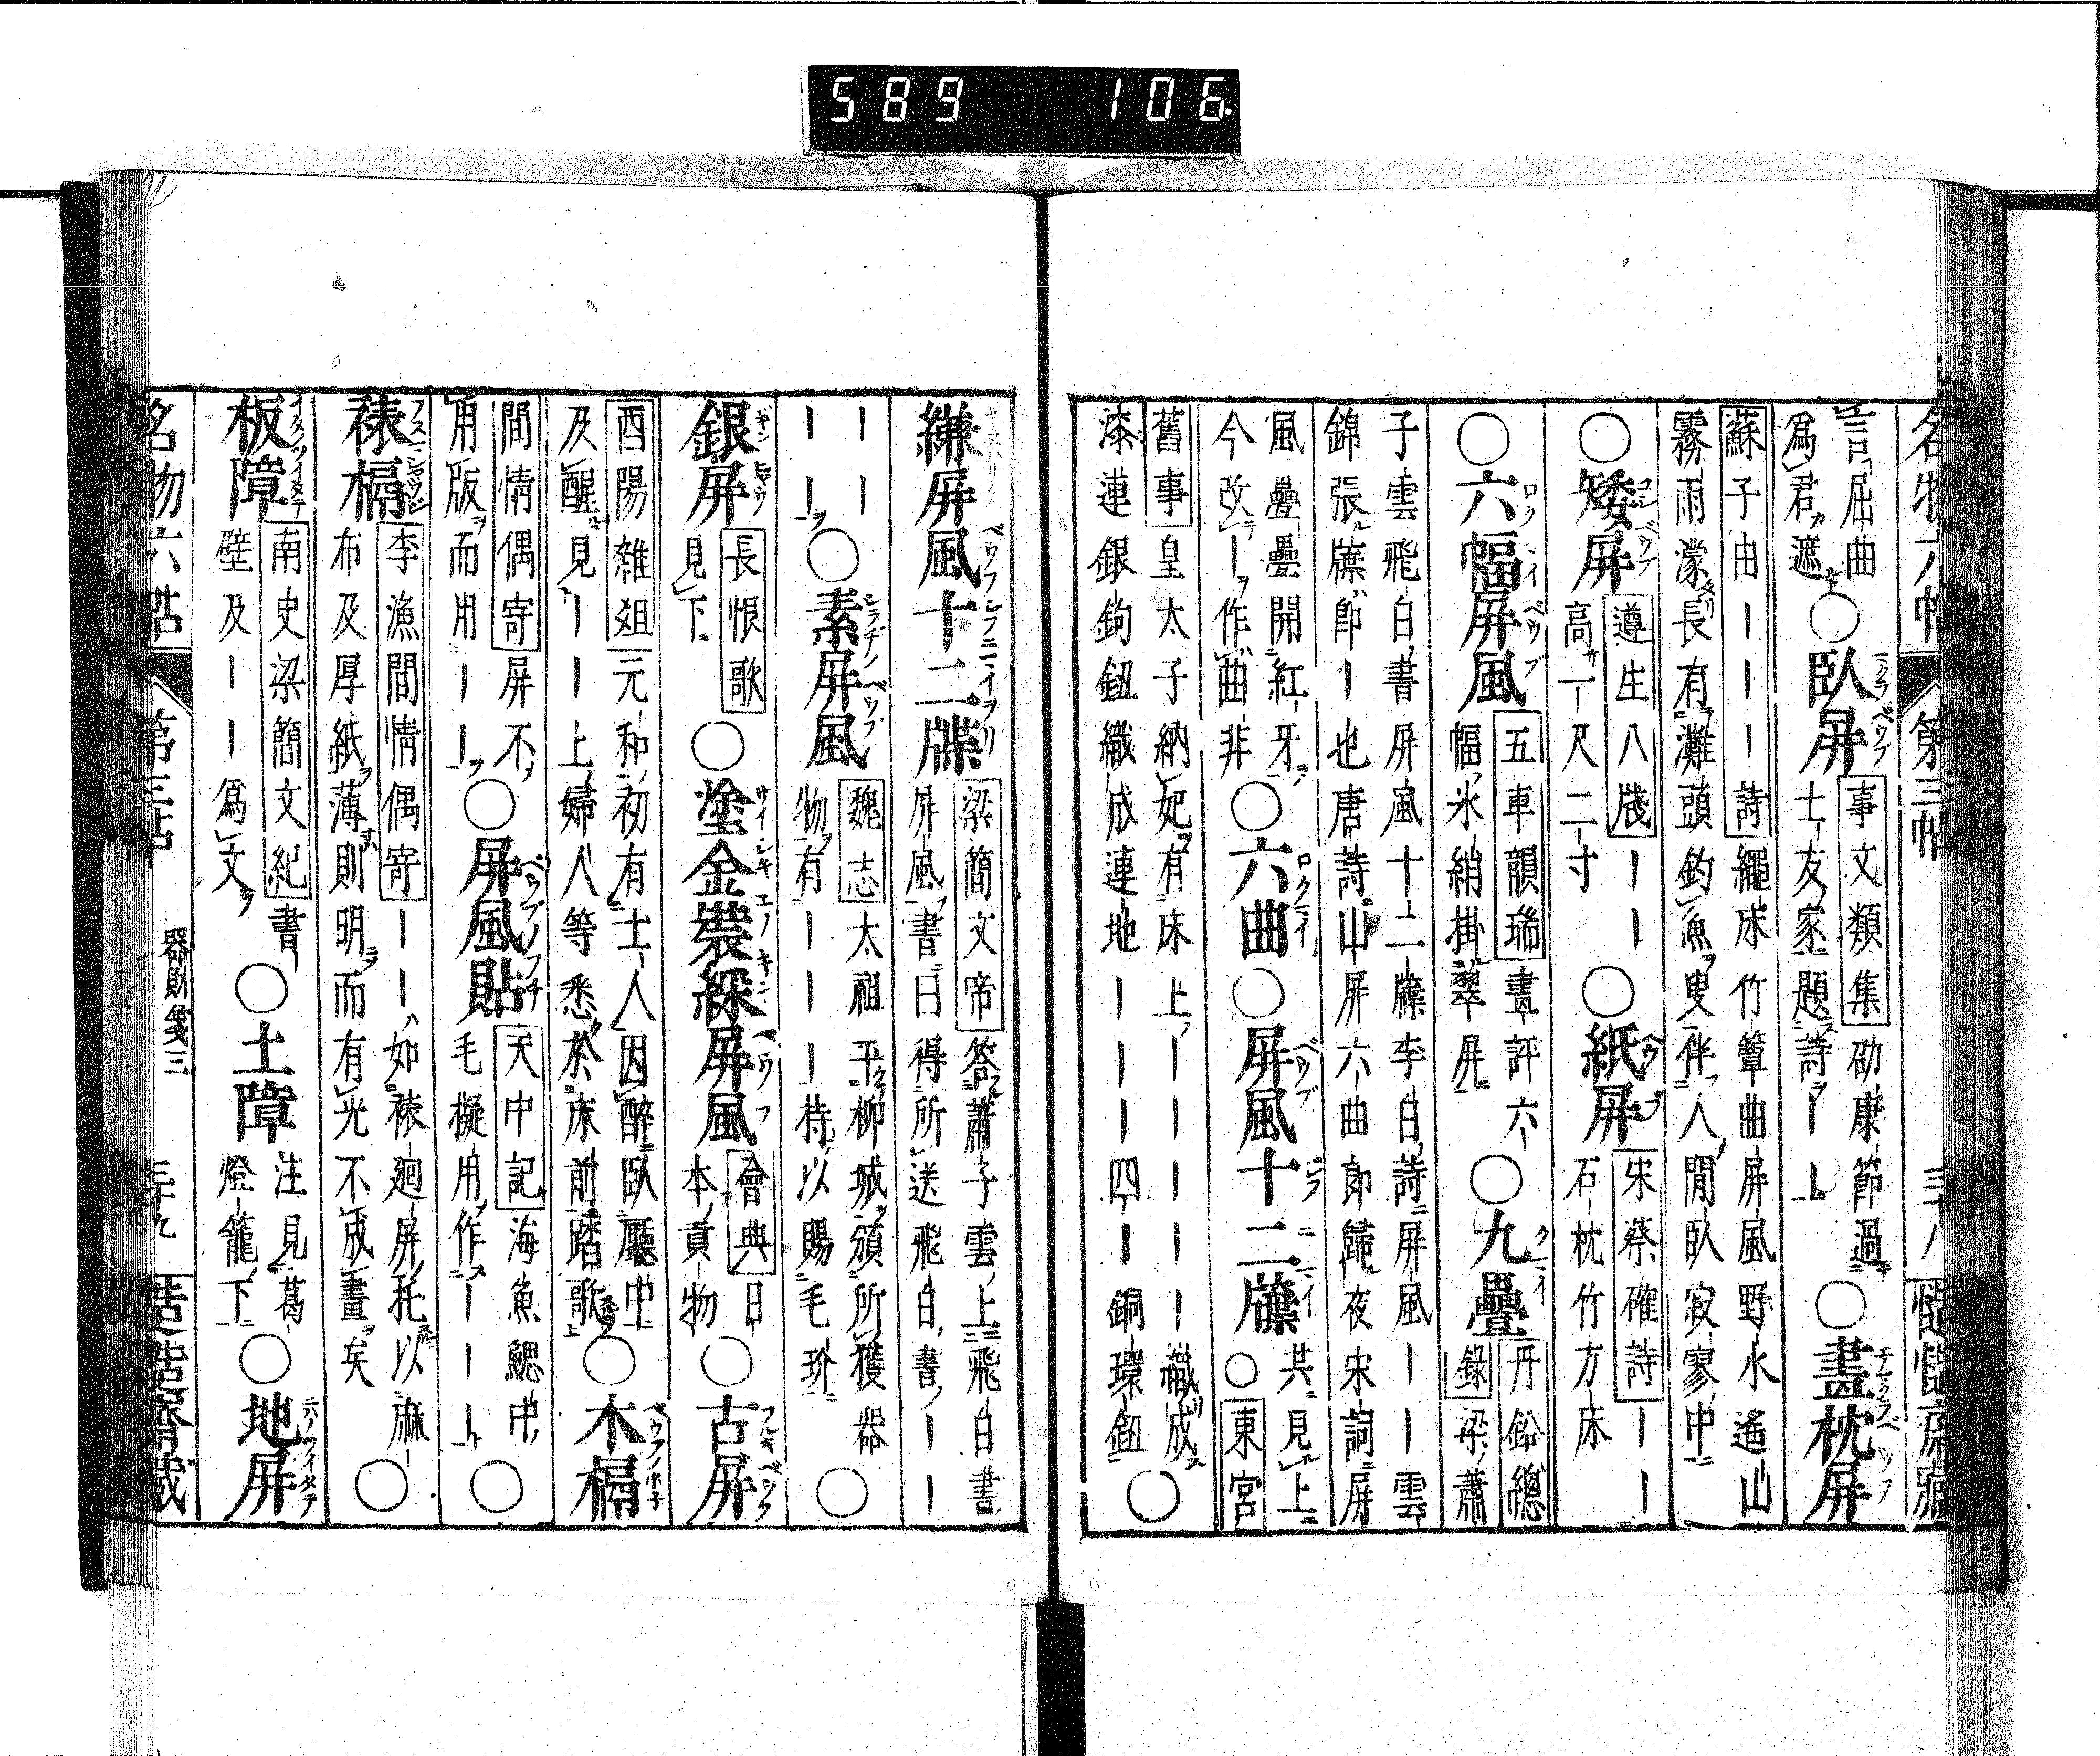 589 106
名物六帖 第三帖 三十八
言屈曲
爲君遮○臥屏 事文類集 砀康節過
士友家題詩ーー○畫枕屏
蘇子由ーーー詩 繩床竹簟曲屏風野水遙山
霧雨濛長有灘頭釣魚叟伴人閒臥寂寥中
○矮屏 遵生八牋ーー
高一尺二寸○紙屏 宋蔡確詩ーー
石枕竹方床
○六幅屏風 五車韻瑞 畫評六
幅氷綃掛翠屏○九疊 丹鉛總
錄 梁蕭
子雲飛白書屏風十二牒李白詩屏風ーー雲
錦張牒卽ー也唐詩山屏六曲郎歸夜宋詞屏
風疊疊開紅牙
今改ー作曲非○六曲○屏風十二牒 共見上
○東宮
舊事 皇太子納妃有床上ーーーー織成
漆連銀鉤鈕織成連地ーーーー四ー銅環鈕○
縑屏風十二牒 梁簡文帝 答蕭子雲上飛白書
屏風書曰得所送飛白書ーー
ーー
ーー○素屏風 魏志 太祖平柳城頒所獲器
物有ーーー特以賜毛玠○
銀屏 長恨歌
見下○塗金裝綵屏風 會典 日
本貢物○古屏
酉陽雜俎 元和初有士人因醉臥廳中
及醒見ーー上婦人等悉於床前踏歌○木槅
閒情偶寄 屏不
用版而用ーー○屏風貼 天中記 海魚鰓中
毛擬用作ーーー○
裱槅 李漁閒情偶寄ーー如裱廻屏托以麻
布及厚紙薄則明而有光不成畫矣○
板障 南史梁簡文紀 書
壁及ーー爲文○土障 注見葛
燈籠下○地屏
名物六帖 第三帖 器財箋三 三十九